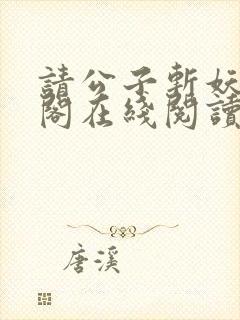 請公子斬妖
閣在綫閱讀
唐溪